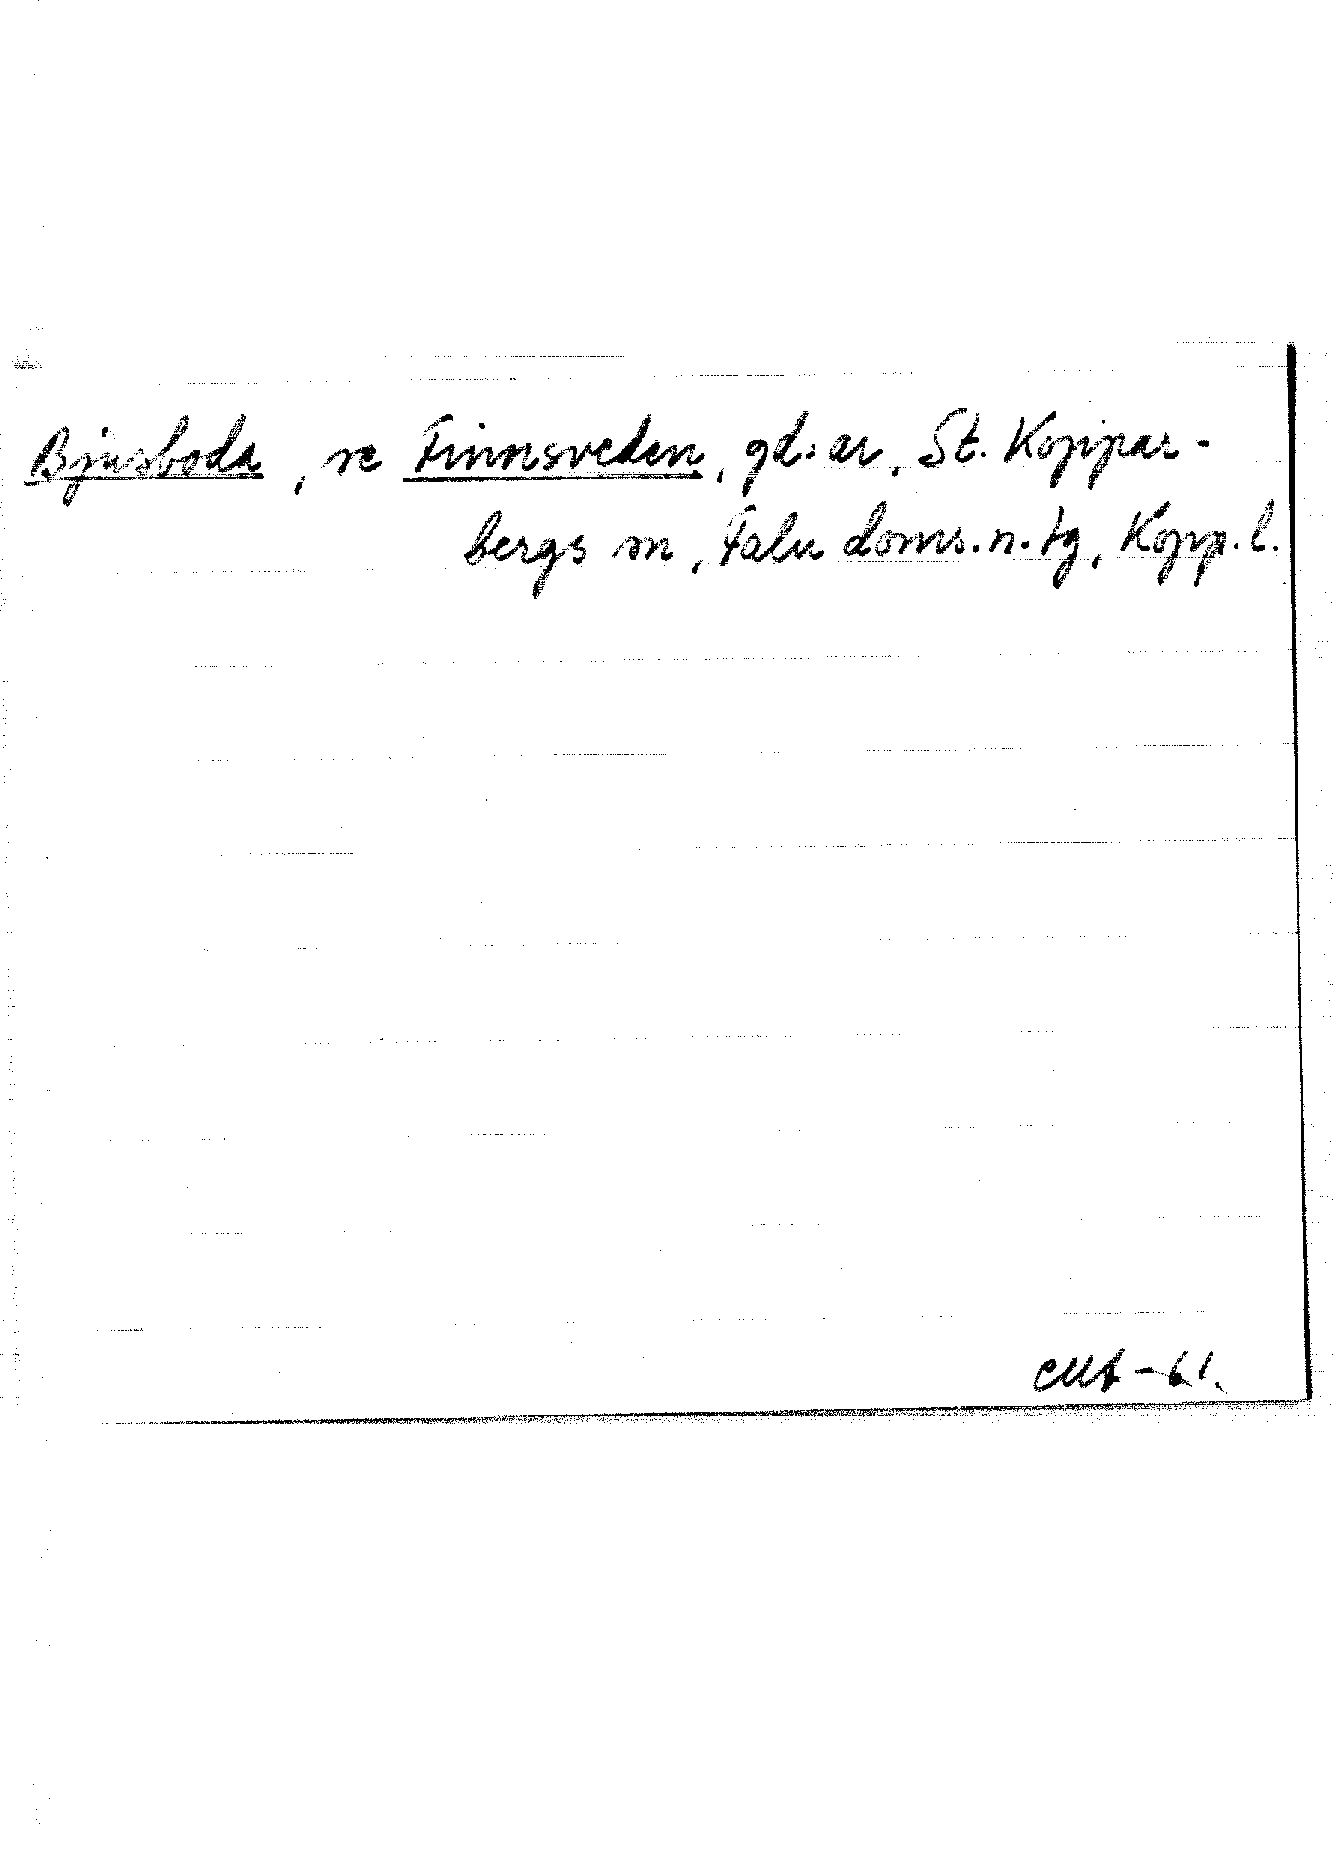 Bjusboda, se Finnsveden, gd:ar, St. Koppar-
bergs sn, Falu doms.n.tg, Kopp.l.
CMA-61.